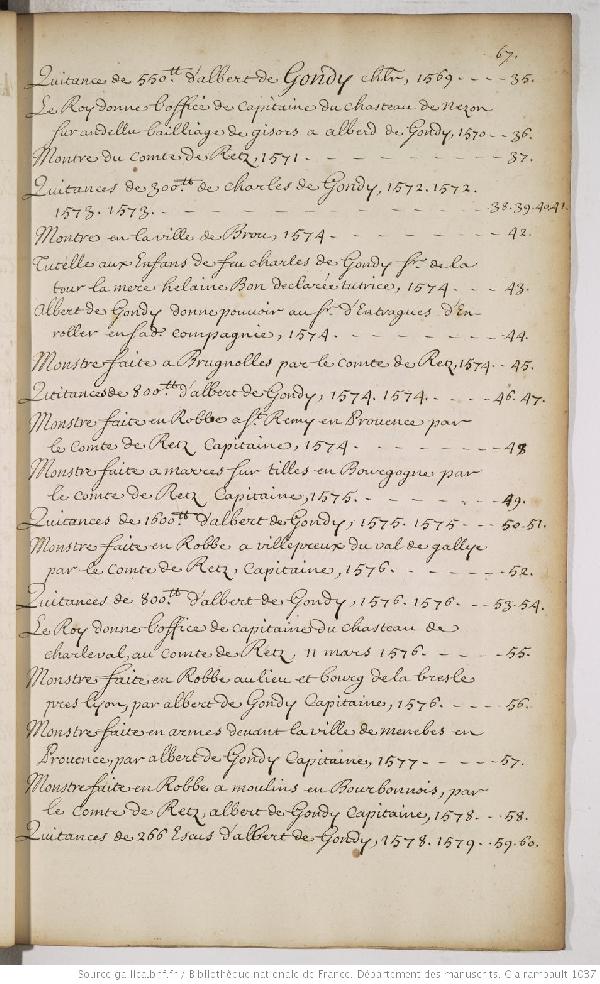 67.
Quitance de 550.tt d'albert de Gondy chlr, 1569. - - - 35.
Le Roy donne l'office de Capitaine du chasteau de Nezon
sur andellu bailliage de gisors a alberd de Gondy, 1570 - - 36.
Montre du Comte de Retz, 1571 - - - - - - - 37.
Quitances de 300.tt de charles de Gondy, 1572. 1572.
1573. 1573. - - - - - - - - - - - - 38. 39. 40. 41.
Montre en la ville de Brou, 1574 - - - - - - 42.
Tutelle aux Enfans de feu charles de Gondy sr. de la
tour la mere helaine Bon declarée tutrice, 1574 - - - 43.
Albert de Gondy donne pouvoir au sr. d'Entragues d'En-
roller en sad.e compagnie, 1574. - - - - - - 44.
Monstre faite a Brugnolles par le comte de Retz, 1574. - - 45.
Quittances de 800.tt d'albert de Gondy, 1574. 1574. - - - - 46. 47.
Monstre faite en Robbe a St. Remy en Provence par
le Comte de Retz Capitaine, 1574 - - - - - - 48
Monstre faite a marces sur tilles en Bourgogne par
le comte de Retz Capitaine, 1575. - - - - - - 49.
Quitances de 1600.tt d'albert de Gondy, 1575. 1575 - - - 50. 51.
Monstre faite en Robbe a villepreux du val de gallye
par le Comte de Retz, Capitaine, 1576. - - - - - 52.
Quitances de 800.tt d'albert de Gondy, 1576. 1576. - - 53. 54.
Le Roy donne l'office de capitaine du chasteau de
charleval, au comte de Retz 11 mars 1576. - - - - 55.
Monstre faite en Robbe au lieu et bourg de la bresle
pres lyon, par albert de Gondy Capitaine, 1576. - - - - 56.
Monstre faite en armes devant la ville de menebes en
Provence, par albert de Gondy Capitaine, 1577 - - - - 57.
Monstre faite en Robbe a moulins en Bourbonnois, par
le Comte de Retz, albert de Gondy Capitaine, 1578 - - 58.
Quitances de 266 Escus d'albert de Gondy, 1578. 1579 - - 59. 60.
Source gallica.bnf.fr / Bibliothèque nationale de France. Département des manuscrits. Clairambault 1037